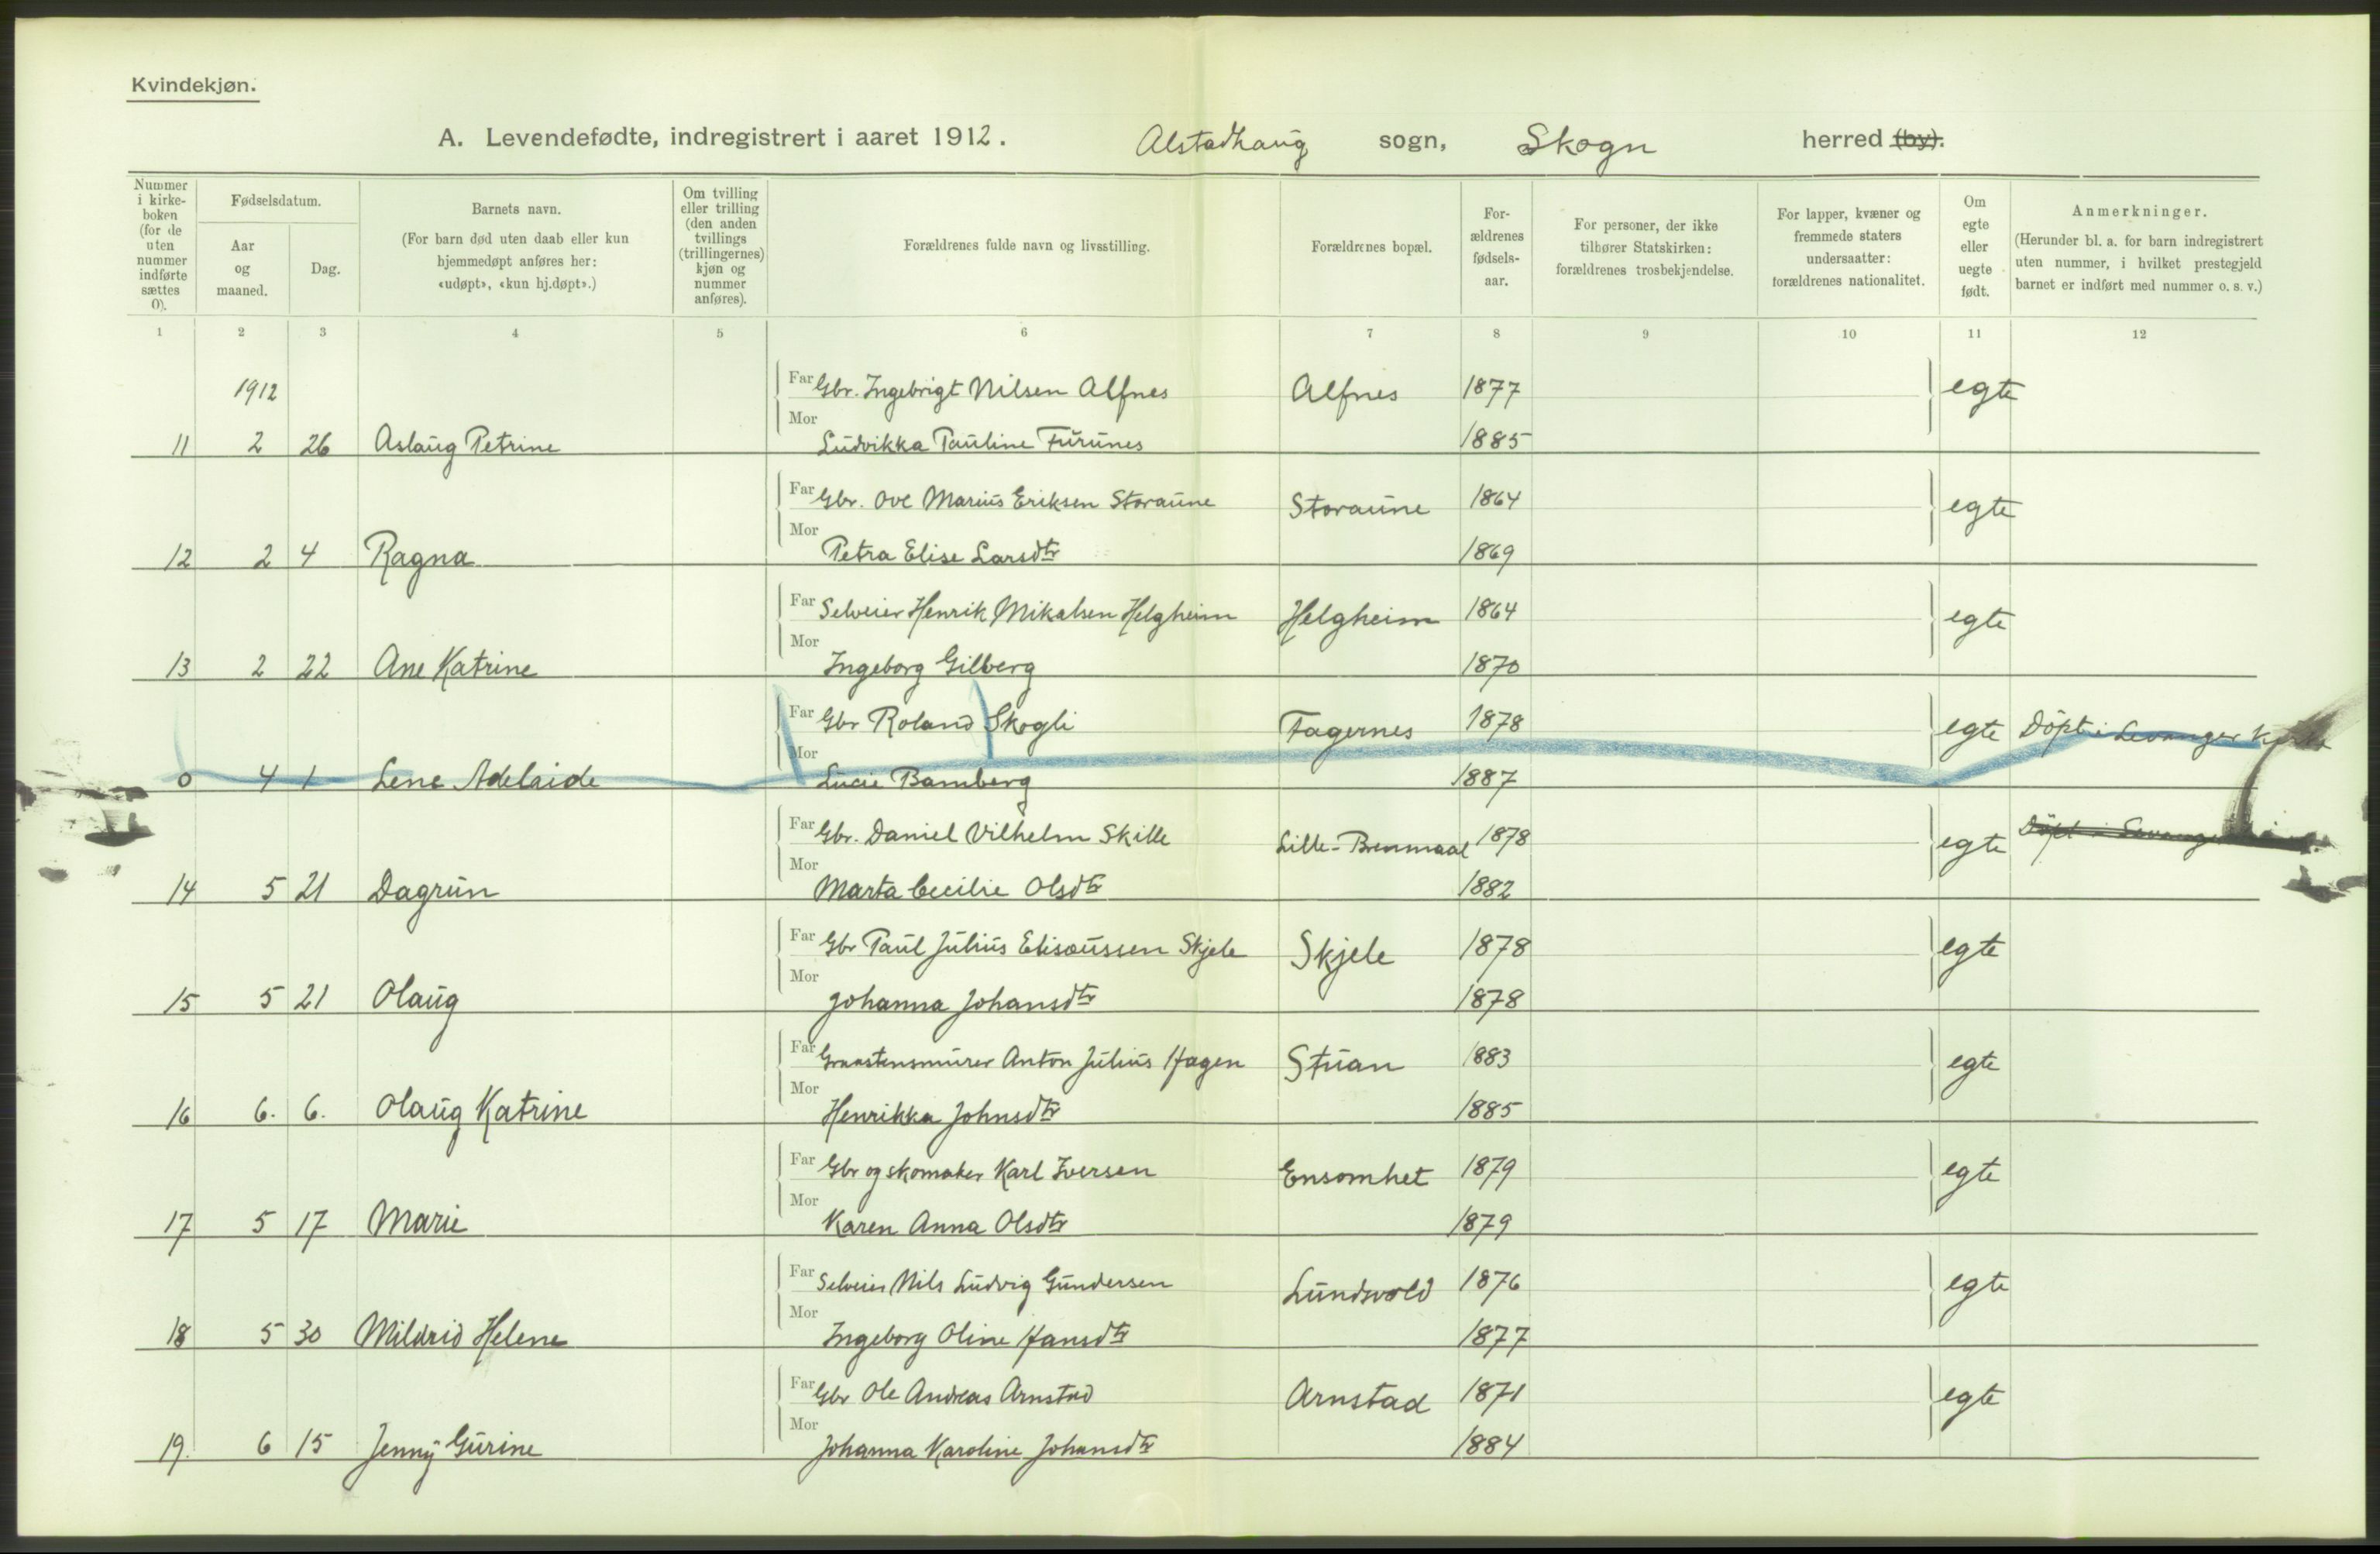 Kvindekjøn.
A. Levendefødte, indregistrert i aaret 1912. Alstadhaug sogn, Skogn herred (by).
Nummer i kirkeboken (for de uten nummer indførte sættes 0).
Fødselsdatum.
Aar og maaned.
Dag.
Barnets navn.
(For barn død uten daab eller kun hjemmedøpt anføres her: «udøpt», «kun hj.døpt».)
Om tvilling eller trilling (den anden tvillings (trillingernes) kjøn og nummer anføres).
Forældrenes fulde navn og livsstilling.
Forældrenes bopæl.
Forældrenes fødselsaar.
For personer, der ikke tilhører Statskirken: forældrenes trosbekjendelse.
For lapper, kvæner og fremmede staters undersaatter: forældrenes nationalitet.
Om egte eller uegte født.
Anmerkninger.
(Herunder bl. a. for barn indregistrert uten nummer, i hvilket prestegjeld barnet er indført med nummer o. s. v.)
1 2 3 4 5 6 7 8 9 10 11 12
1912 Far Gbr. Ingebrigt Nilsen Alfnes Alfnes 1877 egte
11 2 26 Aslaug Petrine Mor Ludvikka Pauline Furunes 1885
Far Gbr. Ove Marius Eriksen Storaune Storaune 1864 egte
12 2 4 Ragna Mor Petra Elise Larsdtr 1869
Far Selveier Henrik Mikalsen Helgheim Helgheim 1864 egte
13 2 22 Ane Katrine Mor Ingeborg Gilberg 1870
Far Gbr Roland Skogli Fagernes 1878 egte Döpt i Levanger
0 4 1 Lene Adelaide Mor Lucie Bamberg 1887
Far Gbr. Daniel Vilhelm Skille Lille- 1878 egte Döpt i
14 5 21 Dagrun Mor Marta Cecilie Olsdtr 1882
Far Gbr Paul Julius Elisæussen Skjele Skjele 1878 egte
15 5 21 Olaug Mor Johanna Johansdtr 1878
Far Graastensmurer Anton Julius Hagen Stuan 1883 egte
16 6. 6. Olaug Katrine Mor Henrikka Johnsdtr 1885
Far Gbr og skomaker Karl Iversen Ensomhet 1879 egte
17 5 17 Marie Mor Karen Anna Olsdtr 1879
Far Selveier Nils Ludvig Gundersen Lundsvold 1876 egte
18 5 30 Mildrid Helene Mor Ingeborg Oline Hansdtr 1877
Far Gbr Ole Andreas Arnstad Arnstad 1871 egte
19. 6 15 Jenny Gurine Mor Johanna Karoline Johansdtr 1884